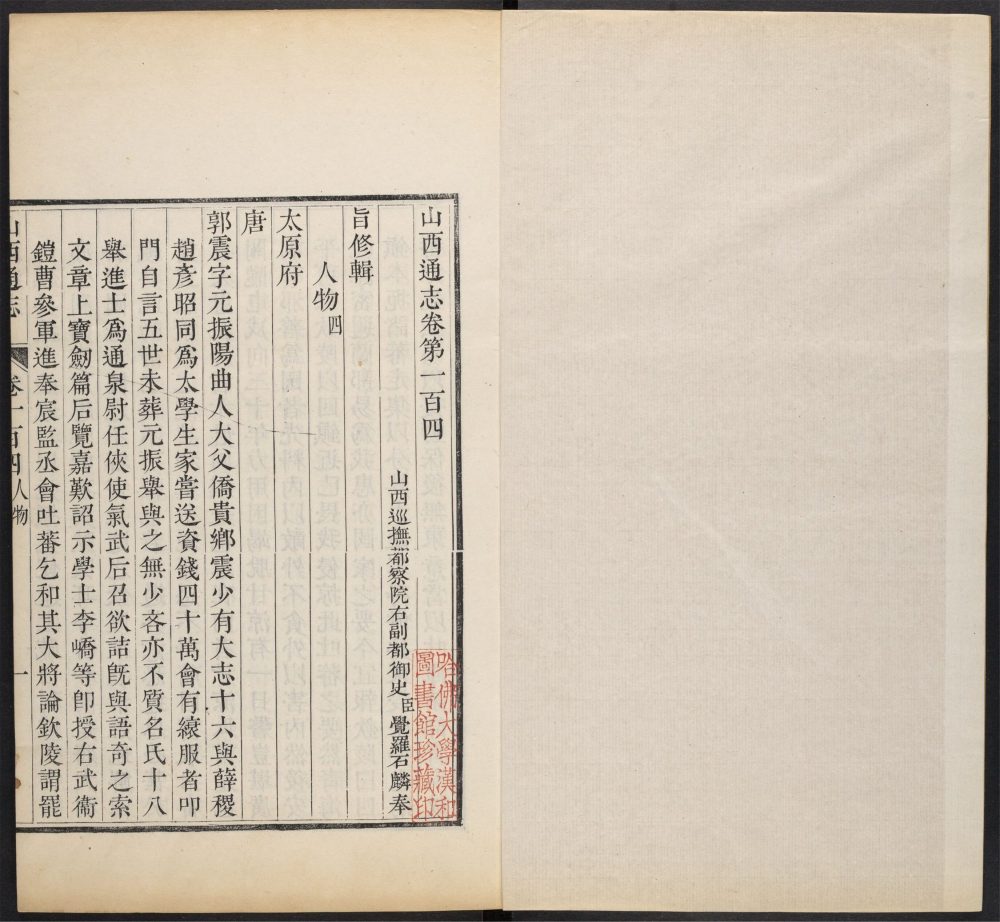 山西通志卷第一百四
山西巡撫都察院右副都御史臣覺羅石麟奉
旨修輯
人物四
太原府
唐
郭震字元振陽曲人大父僑貴鄉震少有大志十六與薛稷
趙彥昭同爲太學生家嘗送資錢四十萬會有縗服者叩
門自言五世未葬元振舉與之無少吝亦不質名氏十八
舉進士爲通泉尉任俠使氣武后召欲詰旣與語奇之索
文章上寶劒篇后覽嘉歎詔示學士李嶠等卽授右武衞
鎧曹參軍進奉宸監丞會吐蕃乞和其大將論欽陵謂罷
山西通志
卷一百四人物
一
哈佛大學漢和
圖書館珍藏印